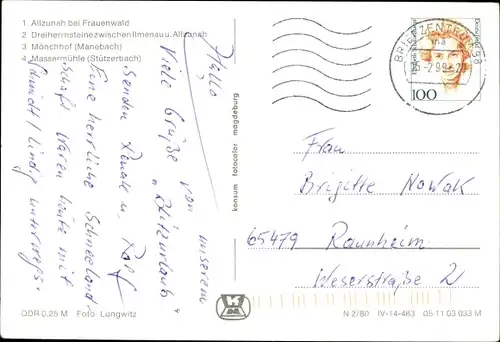 1 Allzunah bei Frauenwald
2 Dreiherrnsteine zwischen Ilmenau u. Allzunah
3 Mönchhof (Manebach)
4 Massermühle (Stützerbach)
Hallo,
Viele Grüße von unserem
"Skizurlaub"
senden Renate u. Rolf
Eine herrliche Schneeland-
schaft. Waren heute mit
Schmidt / Lindig unterwegs.
DDR 0,25 M Foto: Lungwitz
konsum fotocolor magdeburg
BRIEFZENTRUM 98
99
100
Frau
Brigitte Nowak
65479 Raunheim
Weserstraße 2
N 2/80 IV-14-483 05 11 03 033 M